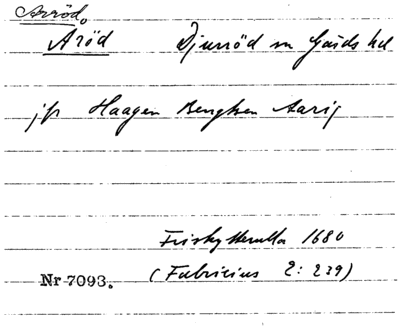 Arröd.
Aröd Djurröd sn Gärds hd
jfr Haagen Bengtsen Aarig
Friskytterulla 1680
Nr 7093. (Fabricius 2:239)